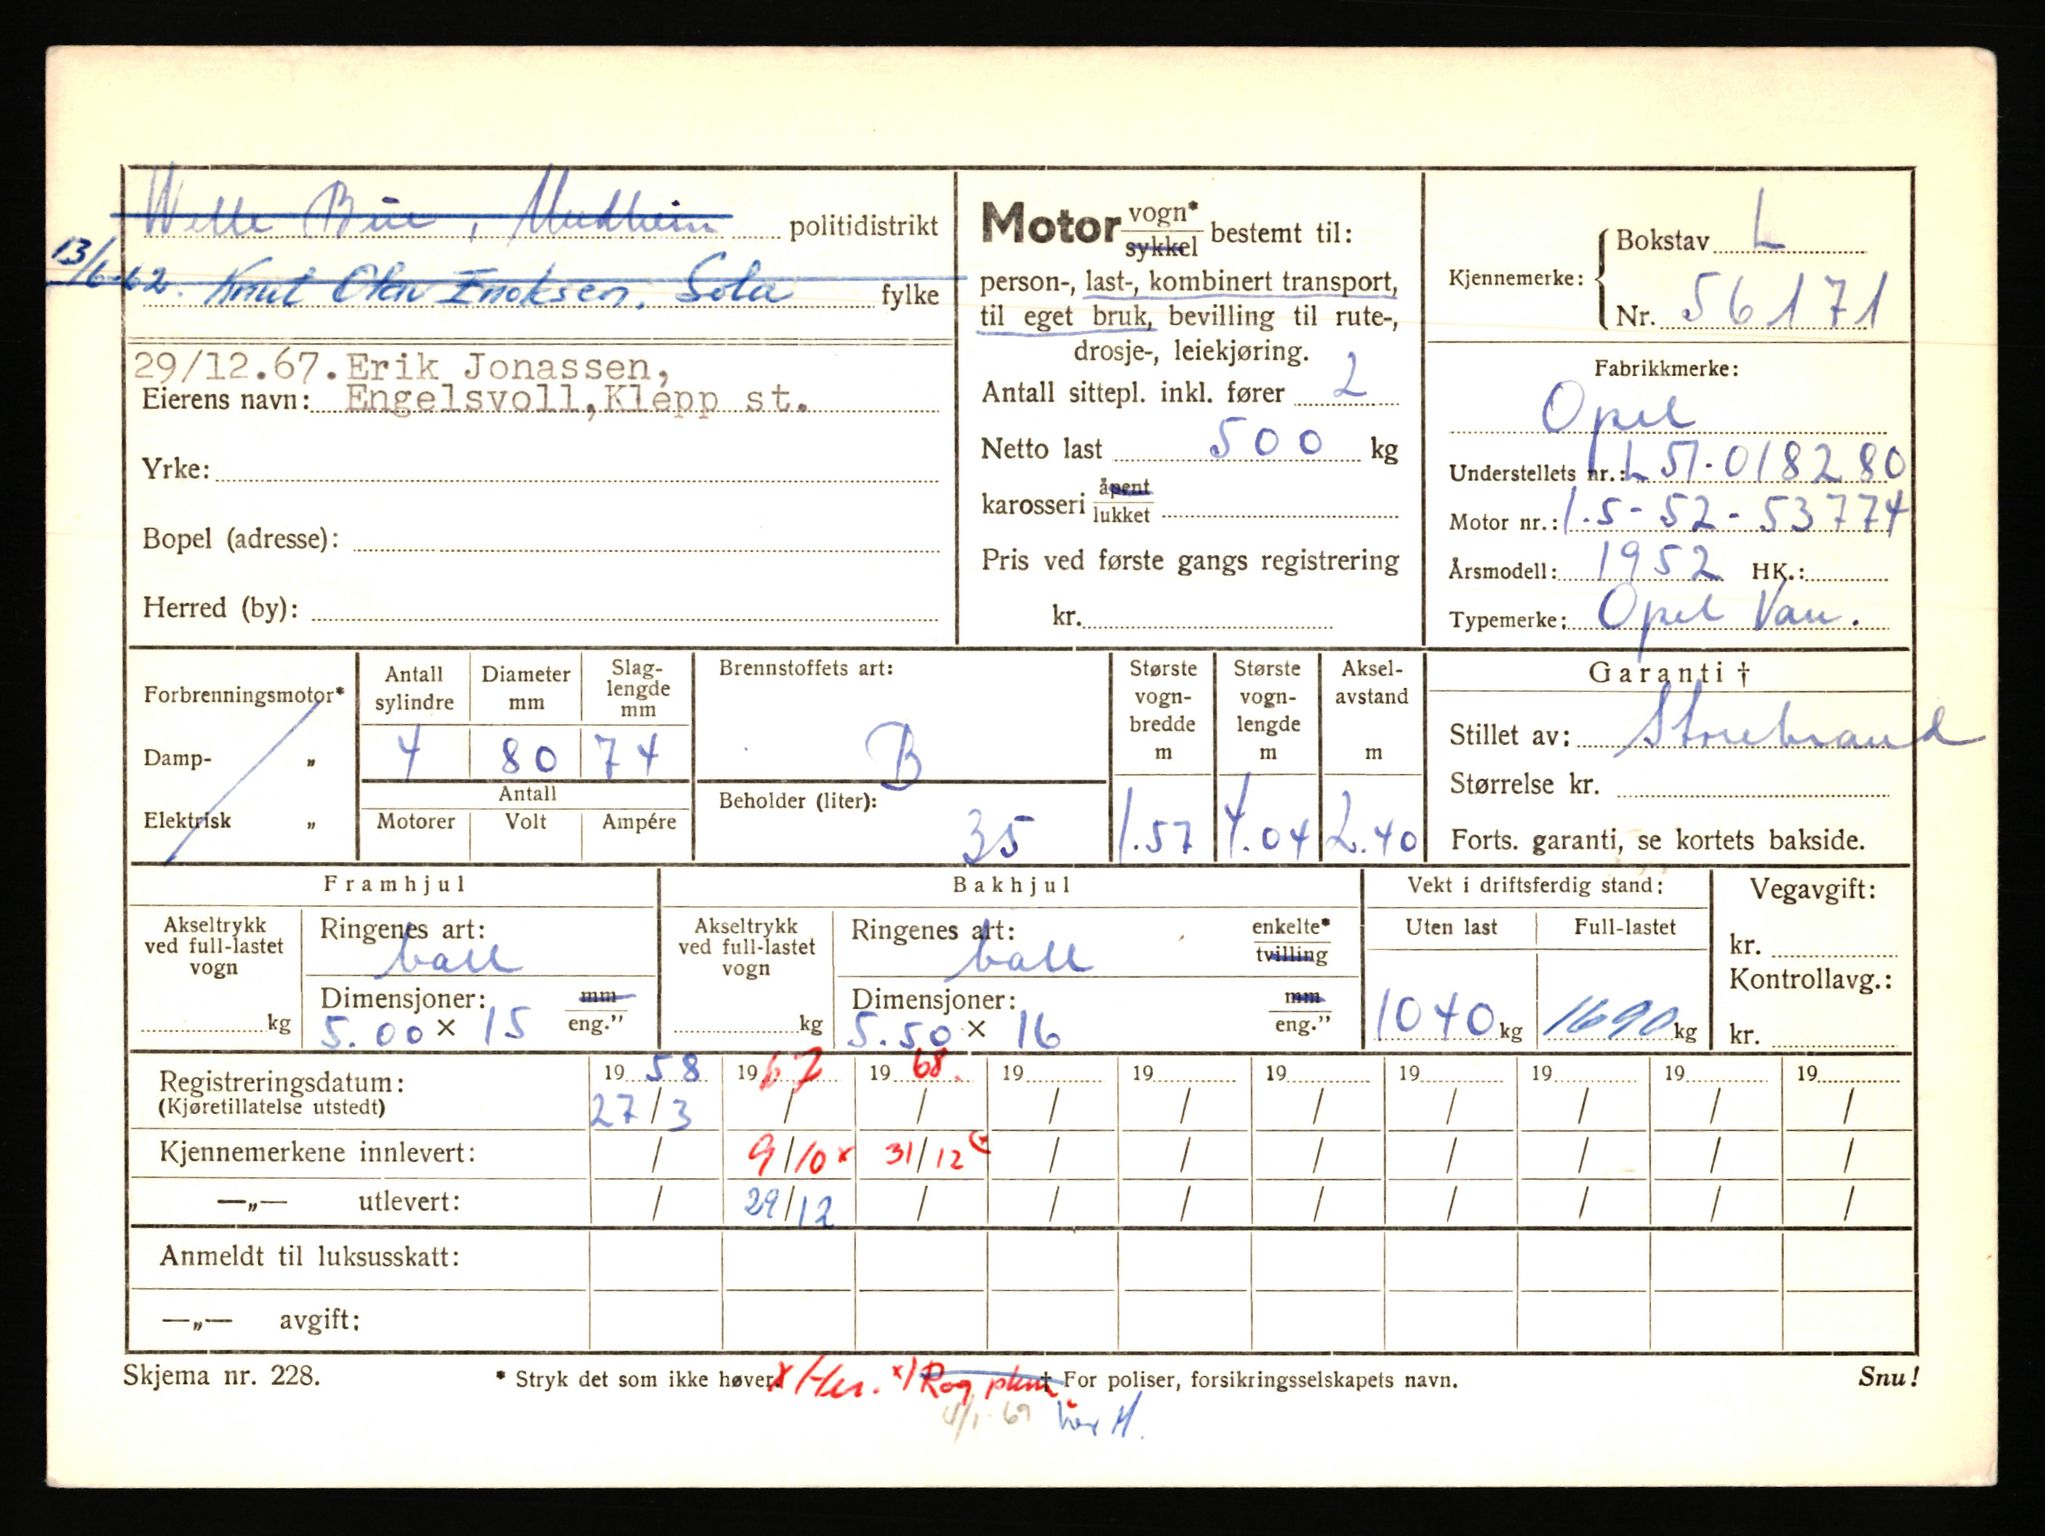 politidistrikt
13/6-62. Knut Olav Eriksen, Sola fylke
29/12.67. Erik Jonassen,
Eierens navn: Engelsvoll, Klepp st.
Yrke:
Bopel (adresse):
Herred (by):
Motor vogn* sykkel bestemt til:
person-, last-, kombinert transport,
til eget bruk, bevilling til rute-,
drosje-, leiekjøring.
Antall sittepl. inkl. fører 2
Netto last 500 kg
karosseri åpent lukket
Pris ved første gangs registrering
kr.
Kjennemerke: Bokstav L
Nr. 56171
Fabrikkmerke:
Opel
Understellets nr.: L 51-018280
Motor nr.: 1.5-52-53774
Årsmodell: 1952 HK.:
Typemerke: Opel Van.
Forbrenningsmotor*
Damp- „
Elektrisk „
Antall sylindre Diameter mm Slag-lengde mm
4 80 74
Antall
Motorer Volt Ampére
Brennstoffets art:
B
Beholder (liter):
35
Største vogn-bredde m Største vogn-lengde m Aksel-avstand m
1.57 4.04 2.40
Garanti †
Stillet av: Storebrand
Størrelse kr.
Forts. garanti, se kortets bakside.
Framhjul
Akseltrykk ved full-lastet vogn
kg
Ringenes art:
ball
Dimensjoner: mm
5.00 × 15 eng.”
Bakhjul
Akseltrykk ved full-lastet vogn
kg
Ringenes art: enkelte*
ball tvilling
Dimensjoner: mm
5.50 × 16 eng.”
Vekt i driftsferdig stand:
Uten last Full-lastet
1040 kg 1690 kg
Vegavgift:
kr.
Kontrollavg.:
kr.
Registreringsdatum: 19 58 19 67 19 68. 19 19 19 19 19 19 19
(Kjøretillatelse utstedt) 27/3 / / / / / / / / /
Kjennemerkene innlevert: / 9/10 x 31/12 / / / / / / /
—„— utlevert: / 29/12 / / / / / / / /
Anmeldt til luksusskatt:
—„— avgift:
Skjema nr. 228. * Stryk det som ikke høver. † For poliser, forsikringsselskapets navn. Snu!
x/ Her. x/ Rog
4/1-69